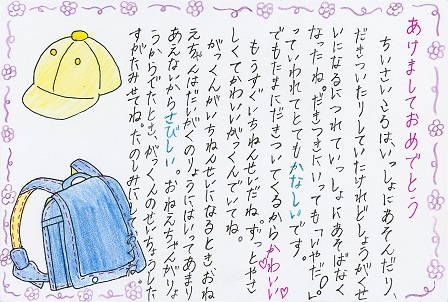 あけましておめでとう
ちいさいころは、いっしょにあそんだり、
だきついたりしていたけれどしょうがくせ
いになるにつれていっしょにあそばなく
なったね。だきつきにいっても「いやだ!」
っていわれてとてもかなしいです。
でもたまにだきついてくるからかわいい♡♡
もうすぐいちねんせいだね。ずっとやさ
しくてかわいいがっくんでいてね。
がっくんがいちねんせいになるとき、おね
えちゃんはだいがくのりょうにはいってあまり
あえないからさびしい。おねえちゃんがりょ
うからでたとき、がっくんのせいちょうした
すがたみせてね。たのしみにして